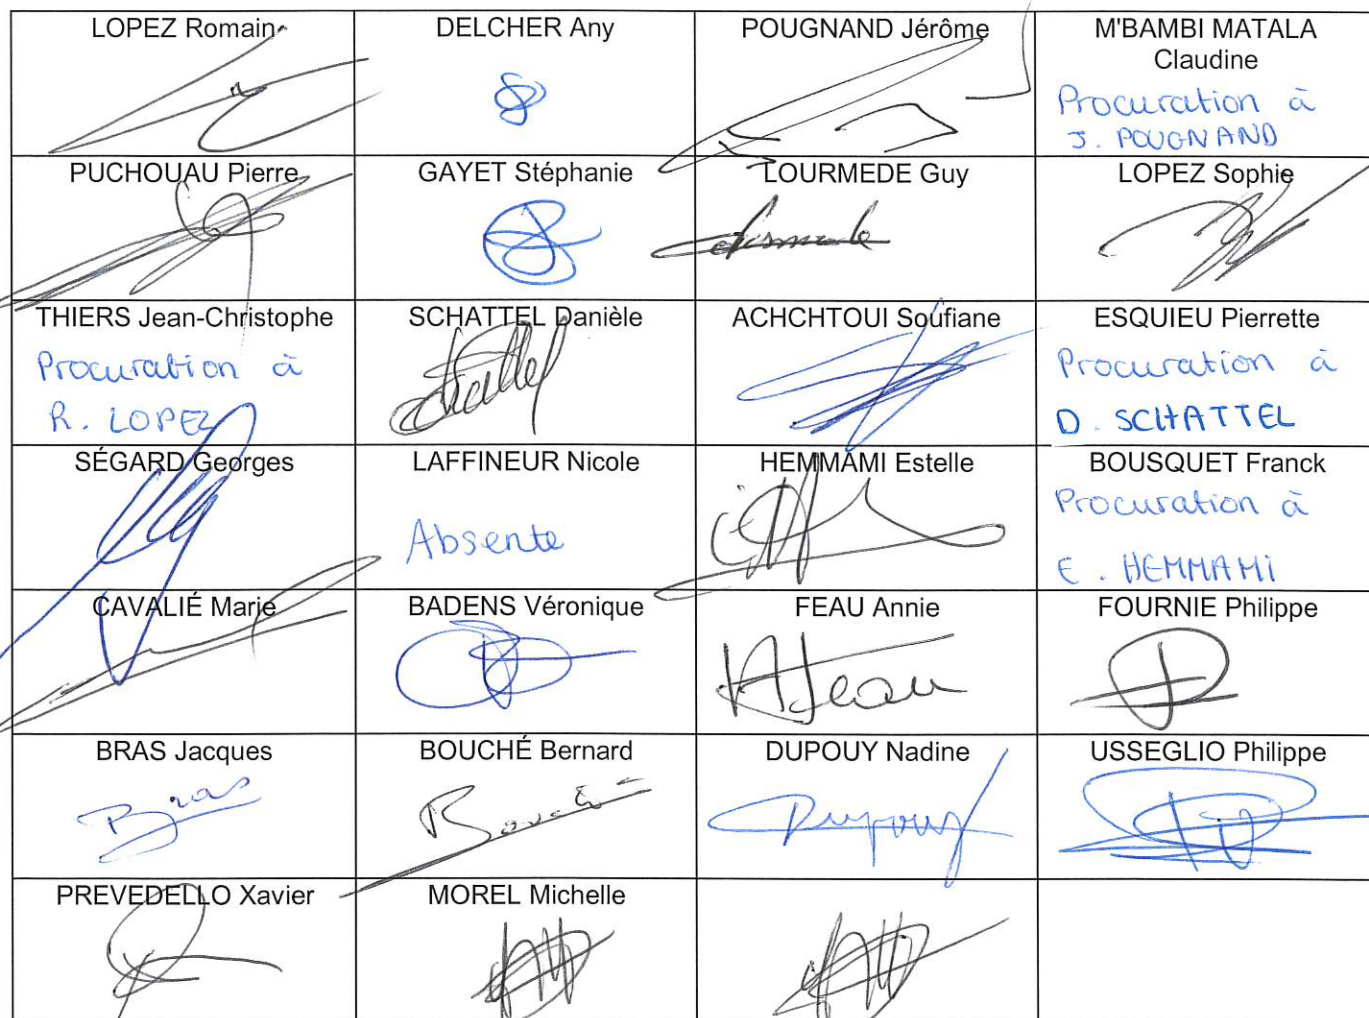 LOPEZ Romain
DELCHER Any
POUGNAND Jérôme
M'BAMBI MATALA
Claudine
Procuration à
J. POUGNAND
PUCHOUAU Pierre
GAYET Stéphanie
LOURMEDE Guy
LOPEZ Sophie
THIERS Jean-Christophe
Procuration à
R. LOPEZ
SCHATTEL Danièle
Schattel
ACHCHTOUI Soufiane
ESQUIEU Pierrette
Procuration à
D. SCHATTEL
SÉGARD Georges
LAFFINEUR Nicole
Absente
HEMMAMI Estelle
BOUSQUET Franck
Procuration à
E. HEMMAMI
CAVALIÉ Marie
BADENS Véronique
FEAU Annie
AFeau
FOURNIE Philippe
BRAS Jacques
Bras
BOUCHÉ Bernard
Bouché
DUPOUY Nadine
Dupouy
USSEGLIO Philippe
PREVEDELLO Xavier
MOREL Michelle